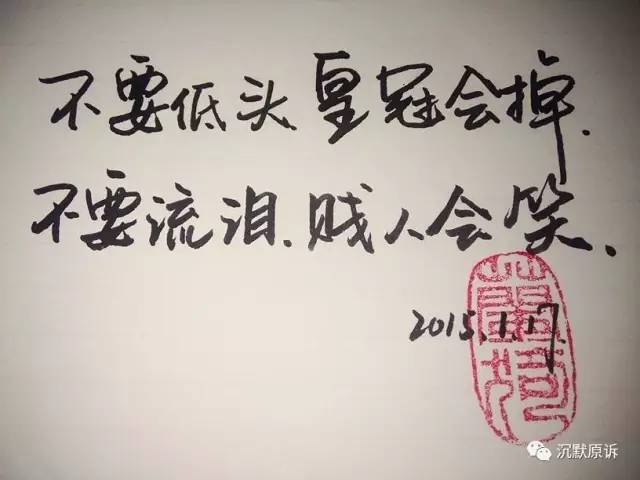 不要低头皇冠会掉.
不要流泪、贱人会笑.
2015.1.17.
沉默原诉